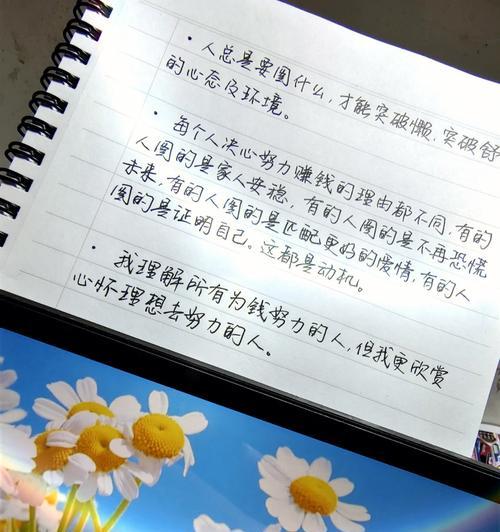 · 人总是要图什么，才能突破懒，突破舒
的心态及环境。
· 每个人决心努力赚钱的理由都不同，有的
人图的是家人安稳，有的人图的是不再恐慌
未来，有的人图的是匹配更好的爱情，有的人
图的是证明自己。这都是动机。
· 我理解所有为钱努力的人，但我更欣赏
心怀理想去努力的人。